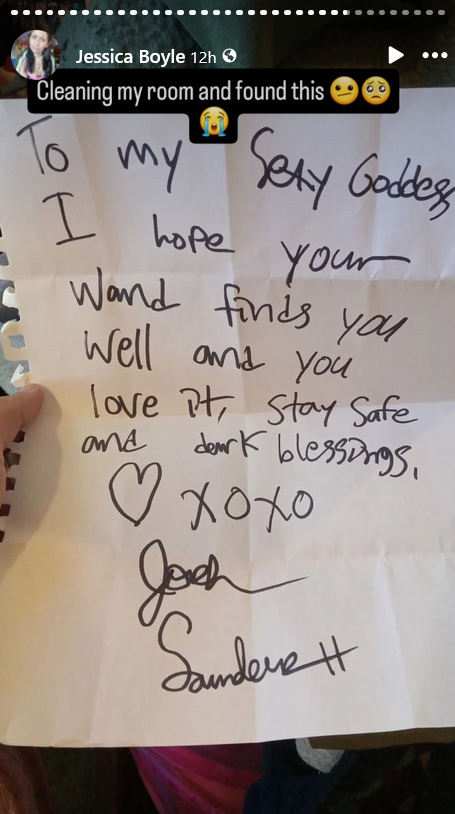 Jessica Boyle 12h
Cleaning my room and found this 😐🥺
😭
To my Sexy Goddess
I hope your
Wand finds you
well and you
love it, stay safe
and dark blessings,
♡ XOXO
Josh